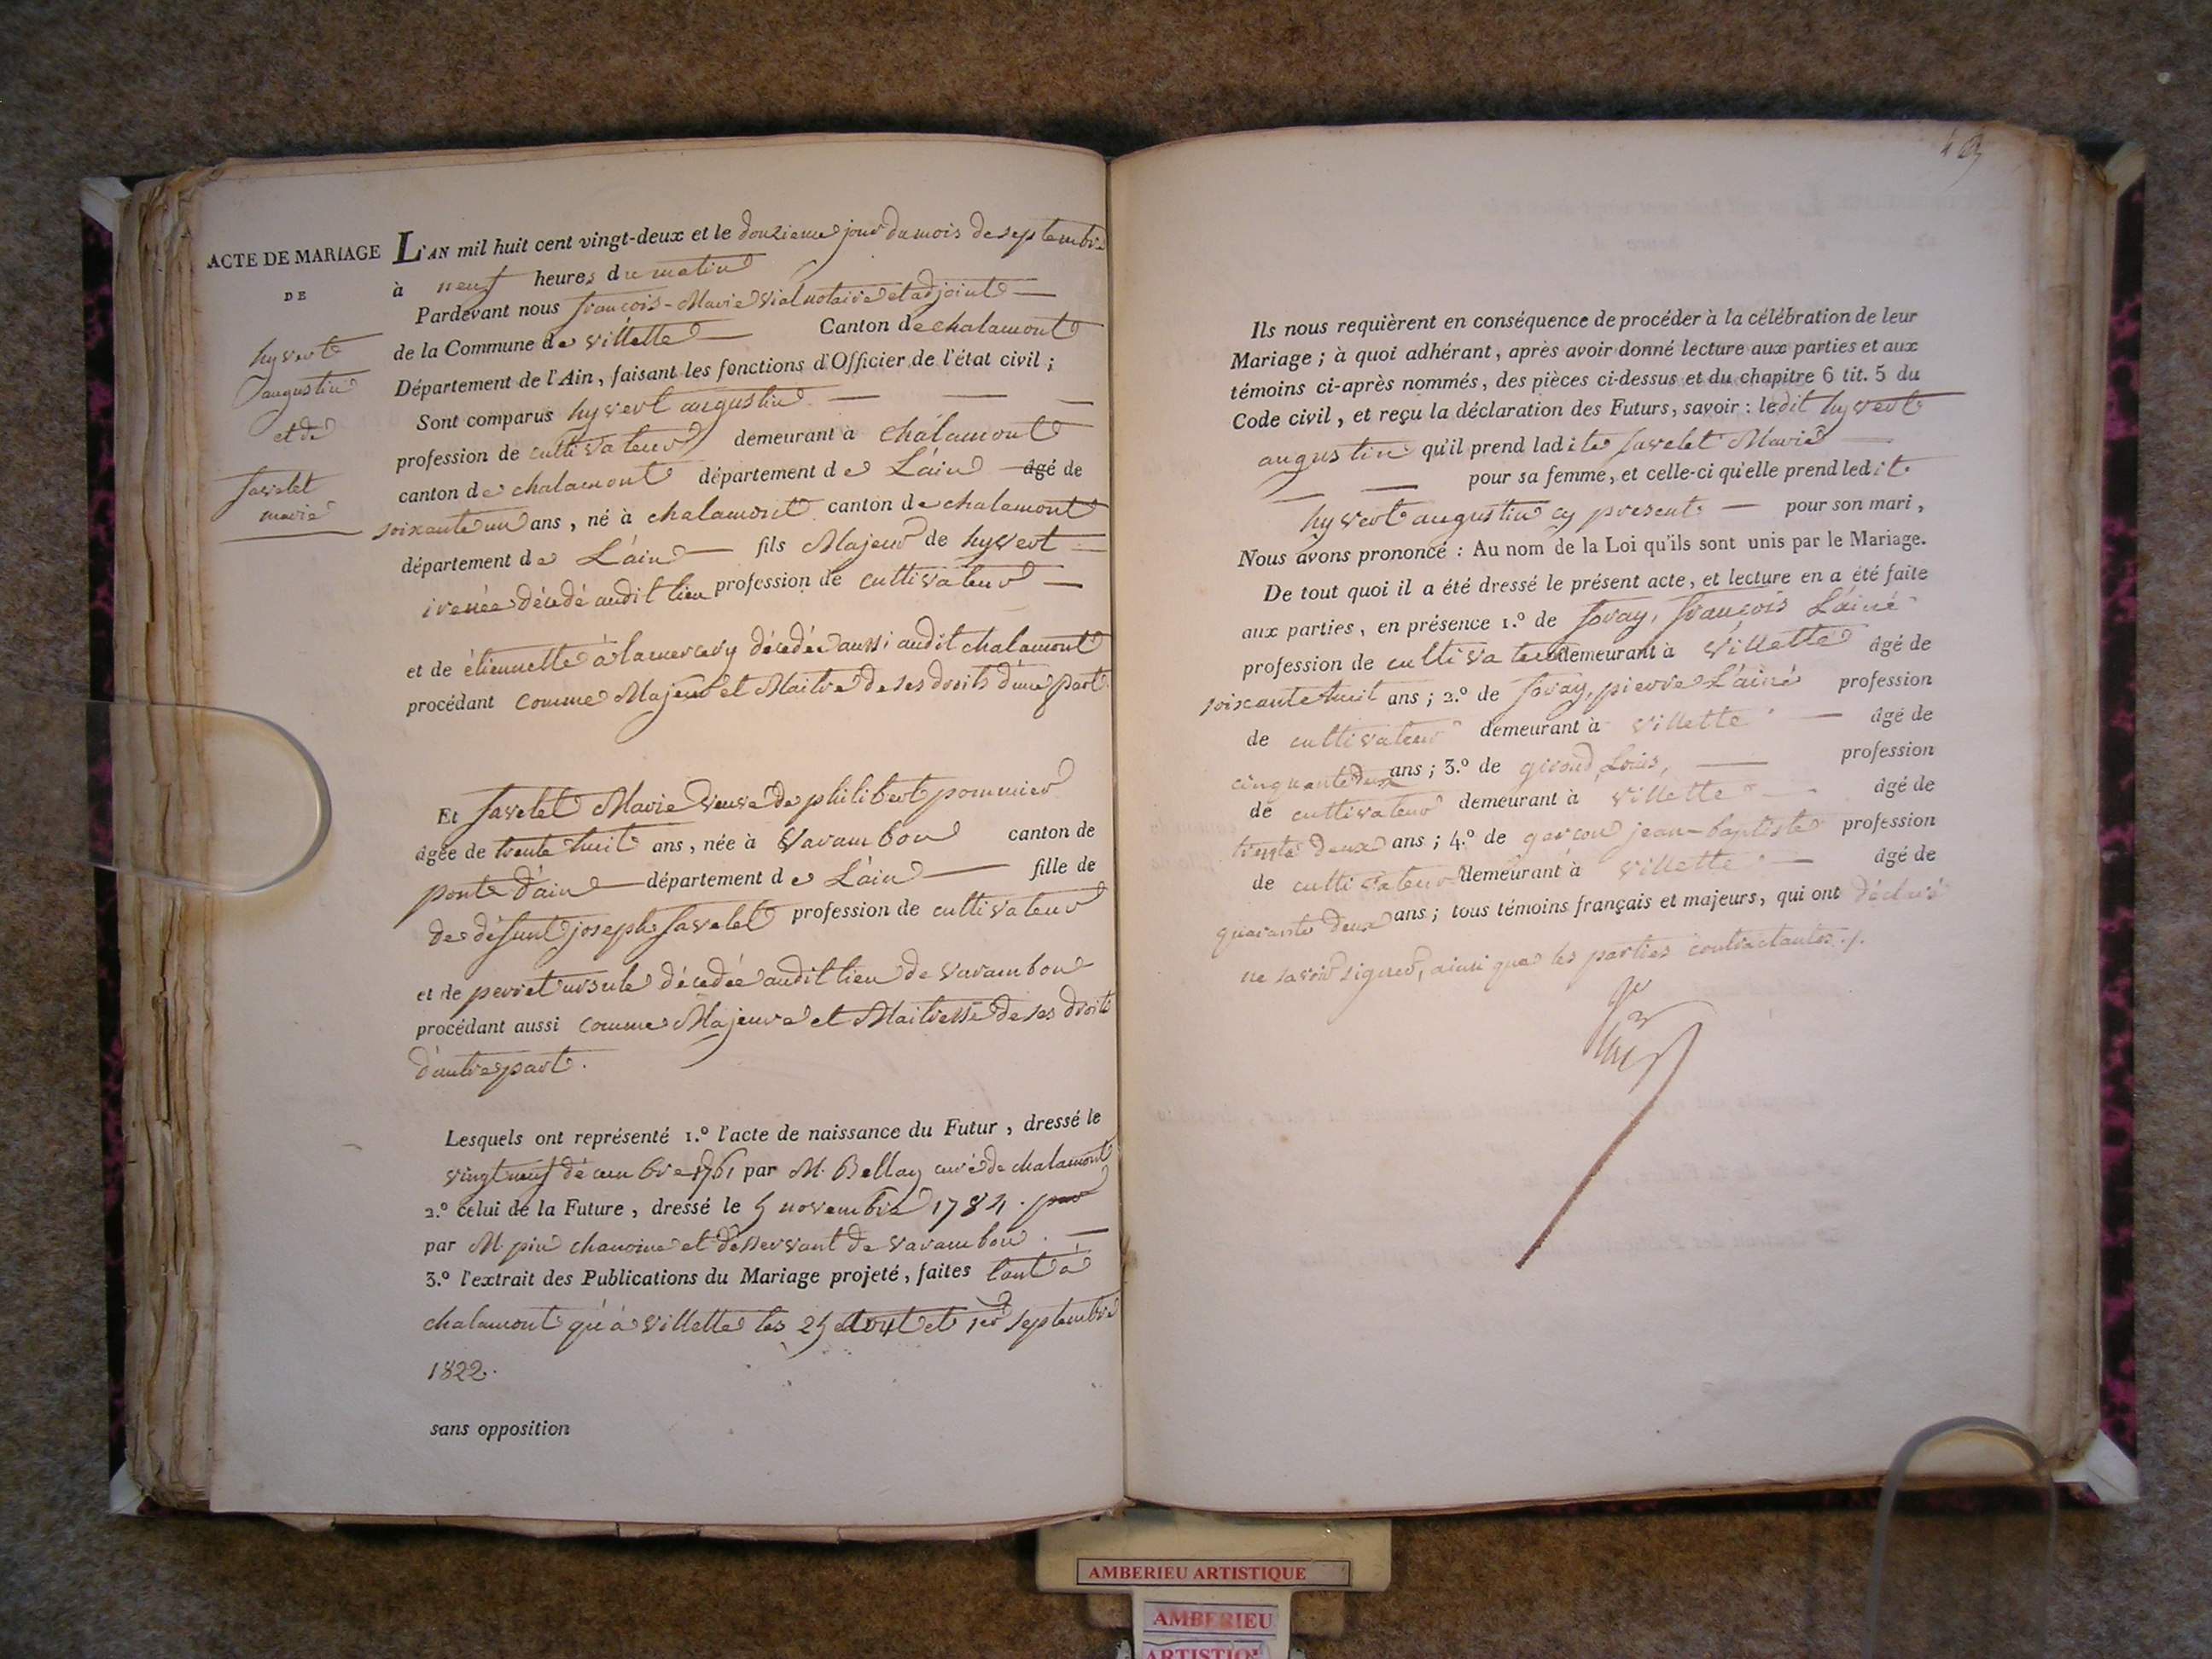 ACTE DE MARIAGE
DE
hyvert
augustin
et de
favelet
marie
L'AN mil huit cent vingt-deux et le douzieme jour du mois de septembre
à neuf heures du matin
Pardevant nous françois-Marie Vial notaire et adjoint
de la Commune de villette Canton de chalamont
Département de l'Ain, faisant les fonctions d'Officier de l'état civil ;
Sont comparus hyvert augustin
profession de cultivateur demeurant à chalamont
canton de chalamont département de L'ain âgé de
soixante un ans, né à chalamont canton de chalamont
département de L'ain fils Majeur de hyvert
irenée décédé audit lieu profession de cultivateur
et de étiennette décédée aussi audit chalamont
procédant comme Majeur et Maitre de ses droits d'une part.
Et favelet Marie veuve de philibert pommier
âgée de trente huit ans, née à Varambon canton de
pont d'ain département de L'ain fille de
de défunt joseph favelet profession de cultivateur
et de perret ursule décédée audit lieu de varambon
procédant aussi comme Majeure et Maitresse de ses droits
d'autre part.
Lesquels ont représenté 1.º l'acte de naissance du Futur, dressé le
vingt neuf décembre 1761 par M. Bellay curé de chalamont
2.º celui de la Future, dressé le 5 novembre 1784. par
par M. pin chanoine et desservant de varambon.
3.º l'extrait des Publications du Mariage projeté, faites tant à
chalamont qu'à villette les 25 aout et 1er septembre
1822.
sans opposition
Ils nous requièrent en conséquence de procéder à la célébration de leur
Mariage ; à quoi adhérant, après avoir donné lecture aux parties et aux
témoins ci-après nommés, des pièces ci-dessus et du chapitre 6 tit. 5 du
Code civil, et reçu la déclaration des Futurs, savoir : ledit hyvert
augustin qu'il prend ladite favelet Marie
pour sa femme, et celle-ci qu'elle prend ledit
hyvert augustin cy present pour son mari,
Nous avons prononcé : Au nom de la Loi qu'ils sont unis par le Mariage.
De tout quoi il a été dressé le présent acte, et lecture en a été faite
aux parties, en présence 1.º de foray, françois L'ainé
profession de cultivateur demeurant à villette âgé de
soixante huit ans ; 2.º de foray, pierre L'ainé profession
de cultivateur demeurant à villette âgé de
cinquante deux ans ; 3.º de giroud Louis, profession
de cultivateur demeurant à villette âgé de
trente deux ans ; 4.º de garçon jean-baptiste profession
de cultivateur demeurant à villette âgé de
quarante deux ans ; tous témoins français et majeurs, qui ont déclaré
ne savoir signer, ainsi que les parties contractantes./.
AMBERIEU ARTISTIQUE
AMBERIEU